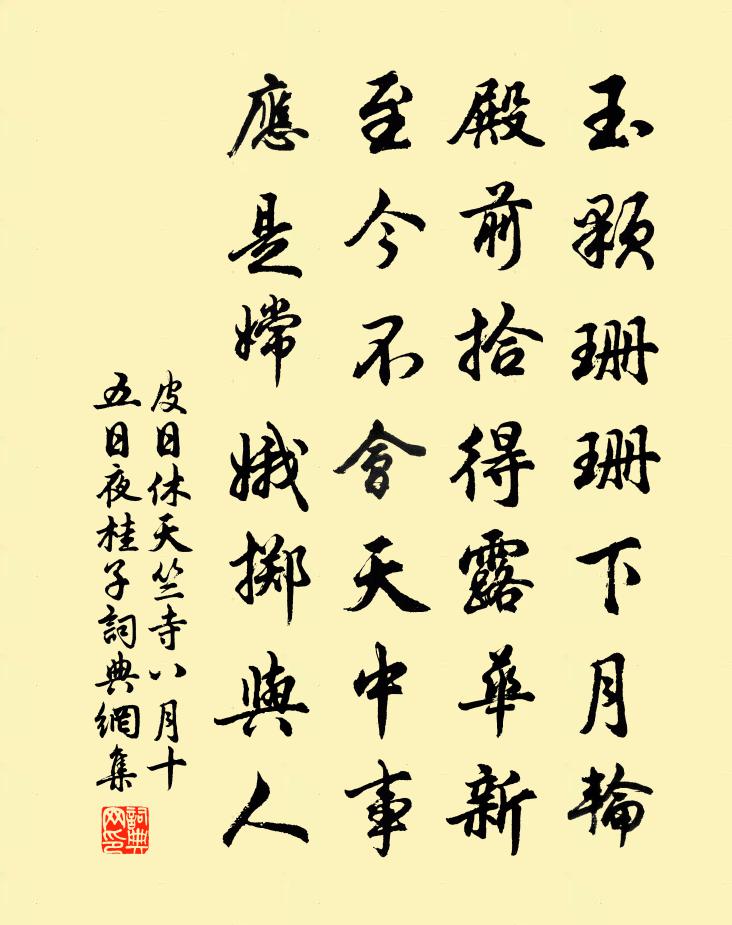 玉顆珊珊下月輪
殿前拾得露華新
至今不會天中事
應是嫦娥擲與人
皮日休天竺寺八月十
五日夜桂子詞典網集
詞典
网印